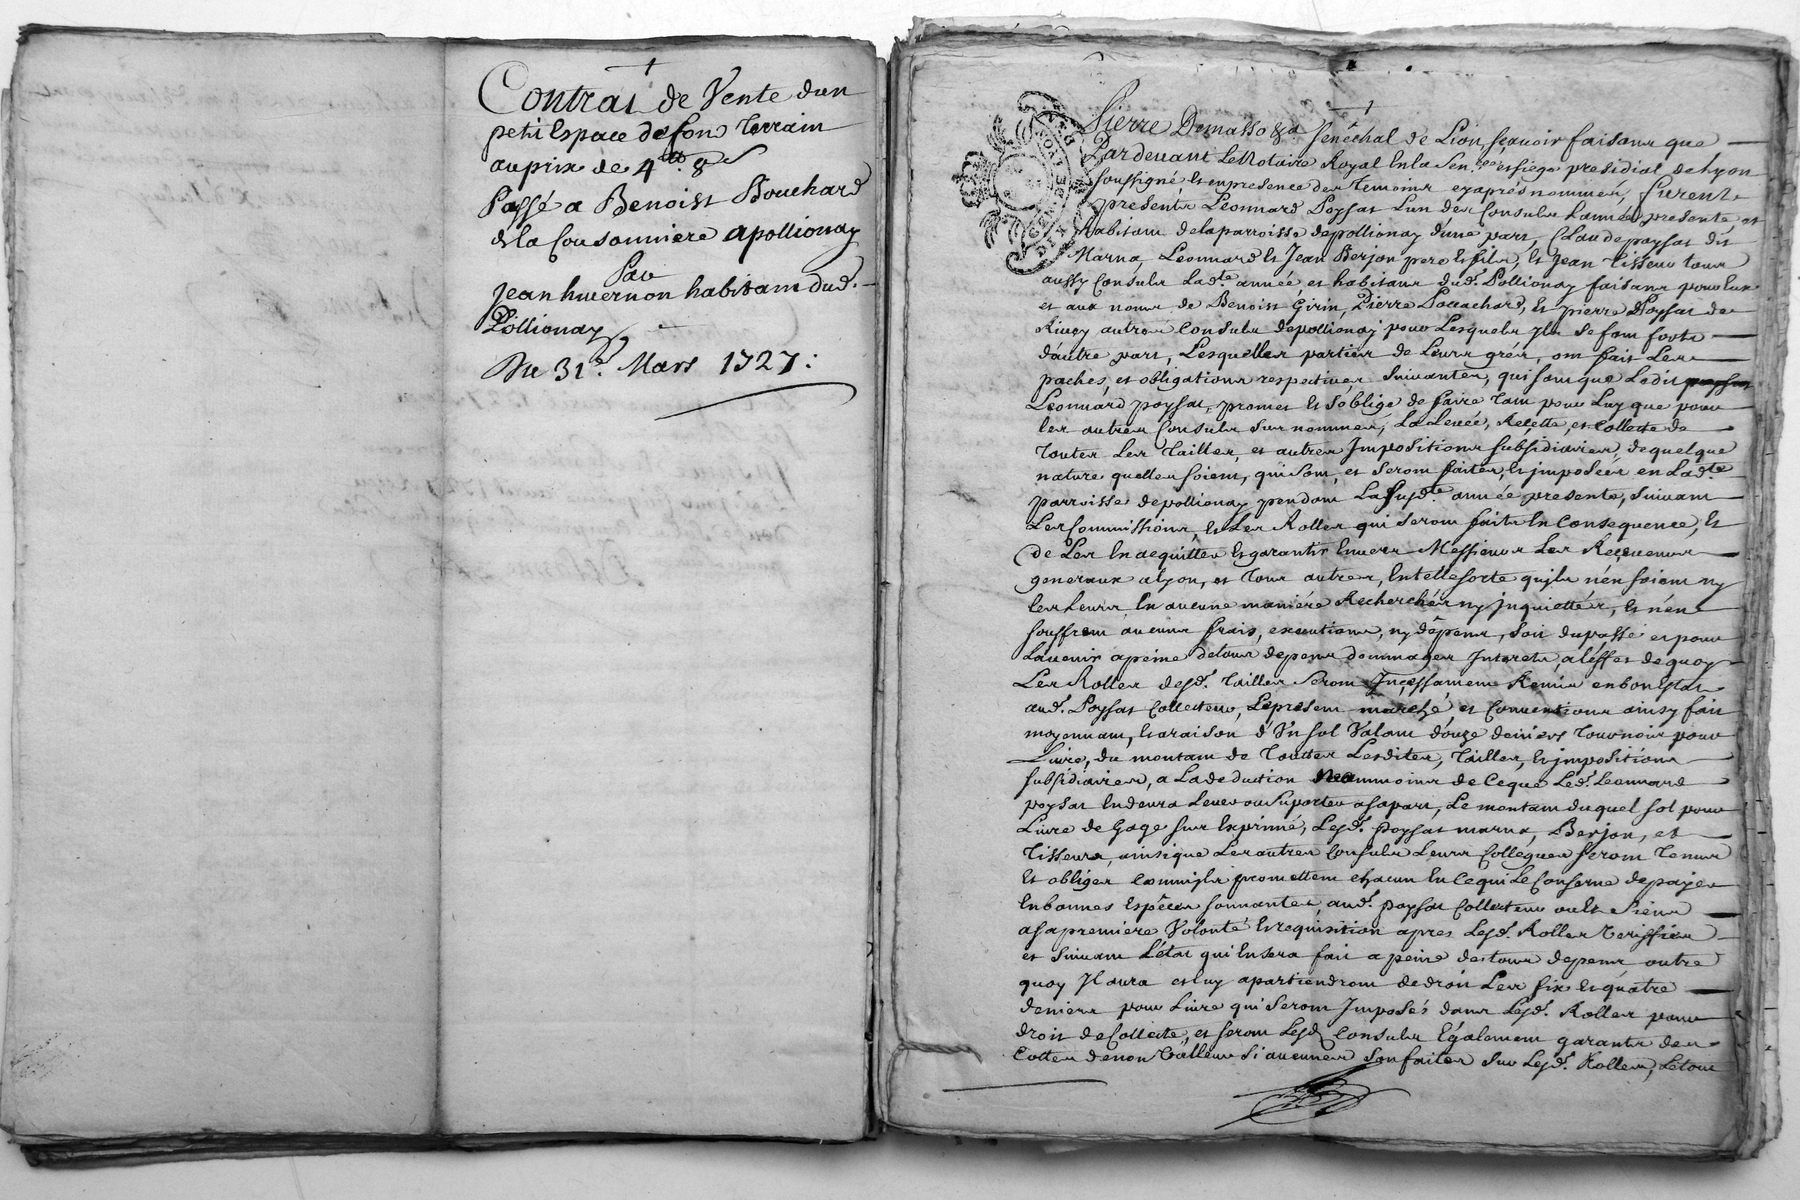 Contrat de Vente d'un
petit Espace de fond Terrain
au prix de 4tt 8s
Passé a Benoist Bouchard
de la Cousonniere apollionay
Par
jean huernon habitant dud.
Pollionay
Du 31e. Mars 1727:
Pierre Demasso &a Senéchal de Lion sçavoir faisons que
Pardevant Le Notaire Royal En la Sen.ée et siege presidial de Lyon
soussigné Et en presence des temoins cy aprés nommés, furent
presents Leonnard Poysat L'un des Consuls L'année presente et
habitant de la parroisse de pollionay d'une part, Claude poysat dit
Marna, Leonnard Et Jean Berjon pere Et fils, Et Jean Tisseur tous
aussy Consuls Lad.te année et habitans dud. Pollionay faisans pour Eux
et aux noms de Benoist Girin, Pierre Bouchard, Et pierre Poysat de
autres Consuls de pollionay pour Lesquels jls se font forts
d'autre part, Lesquelles parties de Leurs grés, ont fait Les
paches, et obligations respectives suivantes, qui sont que Ledit
Leonnard poysat, promet Et s'oblige de faire tant pour Luy que pour
les autres Consuls sus nommés, La Levée, Reçette, et Collecte de
toutes Les Tailles, et autres Impositions subsidiaires, de quelque
nature quelles soient, qui sont, et seront faites, Et jmposées en Lad.te
parroisse de pollionay pendant La susd.te année presente, suivant
Les Commissions, Et Les Rolles qui seront faits En Consequence, Et
de Les En acquitter Et garantir Envers Messieurs Les Reçeveurs
generaux a Lyon, et tous autres, En telle sorte qujls n'en soient ny
les Leurs En aucune maniére Recherchés ny jnquiettés, Et n'en
souffrent aucuns frais, executions, ny dépens, soit du passé et pour
L'avenir a peine de tous depens dommages Interets, a l'effet de quoy
Les Rolles desd. Tailles seront Inçessament Remis en bon Etat
aud. Poysat Collecteur, Le present marché, et Conventions ainsy fait
moyennant, Et a raison d'Un sol Valant douze deniers tournois pour
Livre, du montant de toutes Lesdites, Tailles, Et jmpositions
subsidiaires, a La deduction neanmoins de Ce que Led. Leonnard
poysat En devra Lever ou suporter a sa part, Le montant duquel sol pour
Livre de Gage sus Exprimé, Lesd. poysat marna, Berjon, et
Tisseurs, ainsi que Les autres Consuls Leurs Collegues seront tenus
Et obligés Comm'jls promettent chacun En Ce qui Le Conserne de payer
En bonnes Espêces sonnantes, aud. poysat Collecteur ou Et siens
a sa premiere Volonté Et requisition apres Lesd. Rolles Veriffiés
et suivant L'état qui En sera fait a peine de tous depens outre
quoy Il aura et luy apartiendront de droit Les six Et quatre
deniers pour Livre qui seront Imposés dans Lesd. Rolles pour
droit de Collecte, et seront Lesd. Consuls Egalement garants des
Cottes de non Valleur si aucunes son faites sur Lesd. Rolles, Le tout